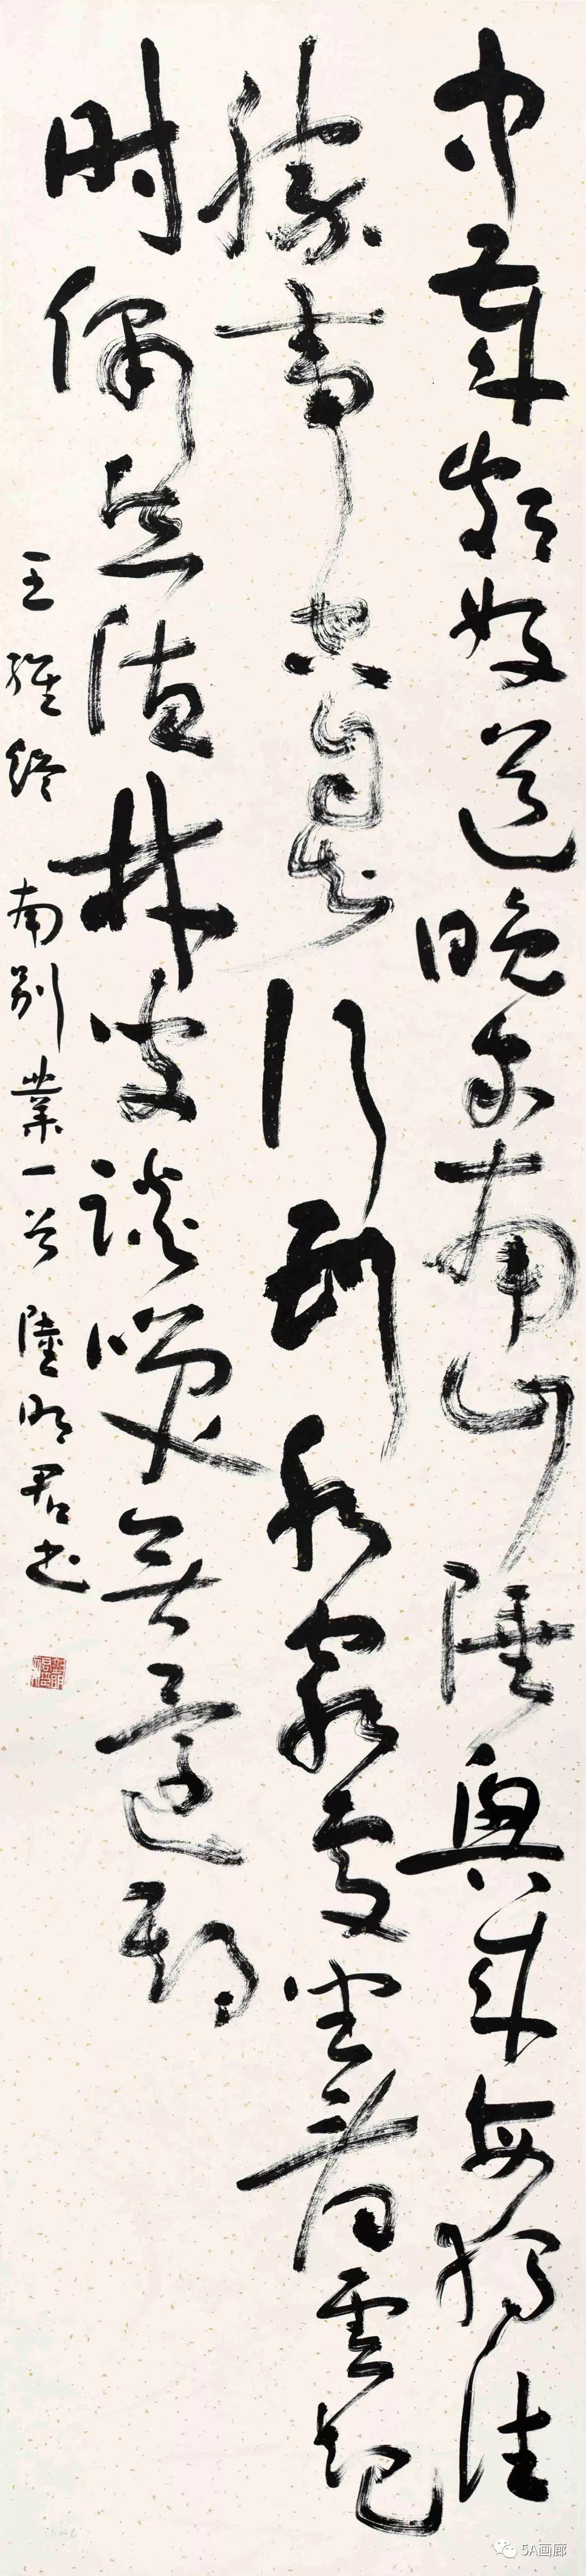 中歲頗好道晚家南山陲興來每獨往
勝事空自知行到水窮處坐看雲起
时偶然值林叟談咲無還期
王維終南别業一首 陸明君书
5A画廊